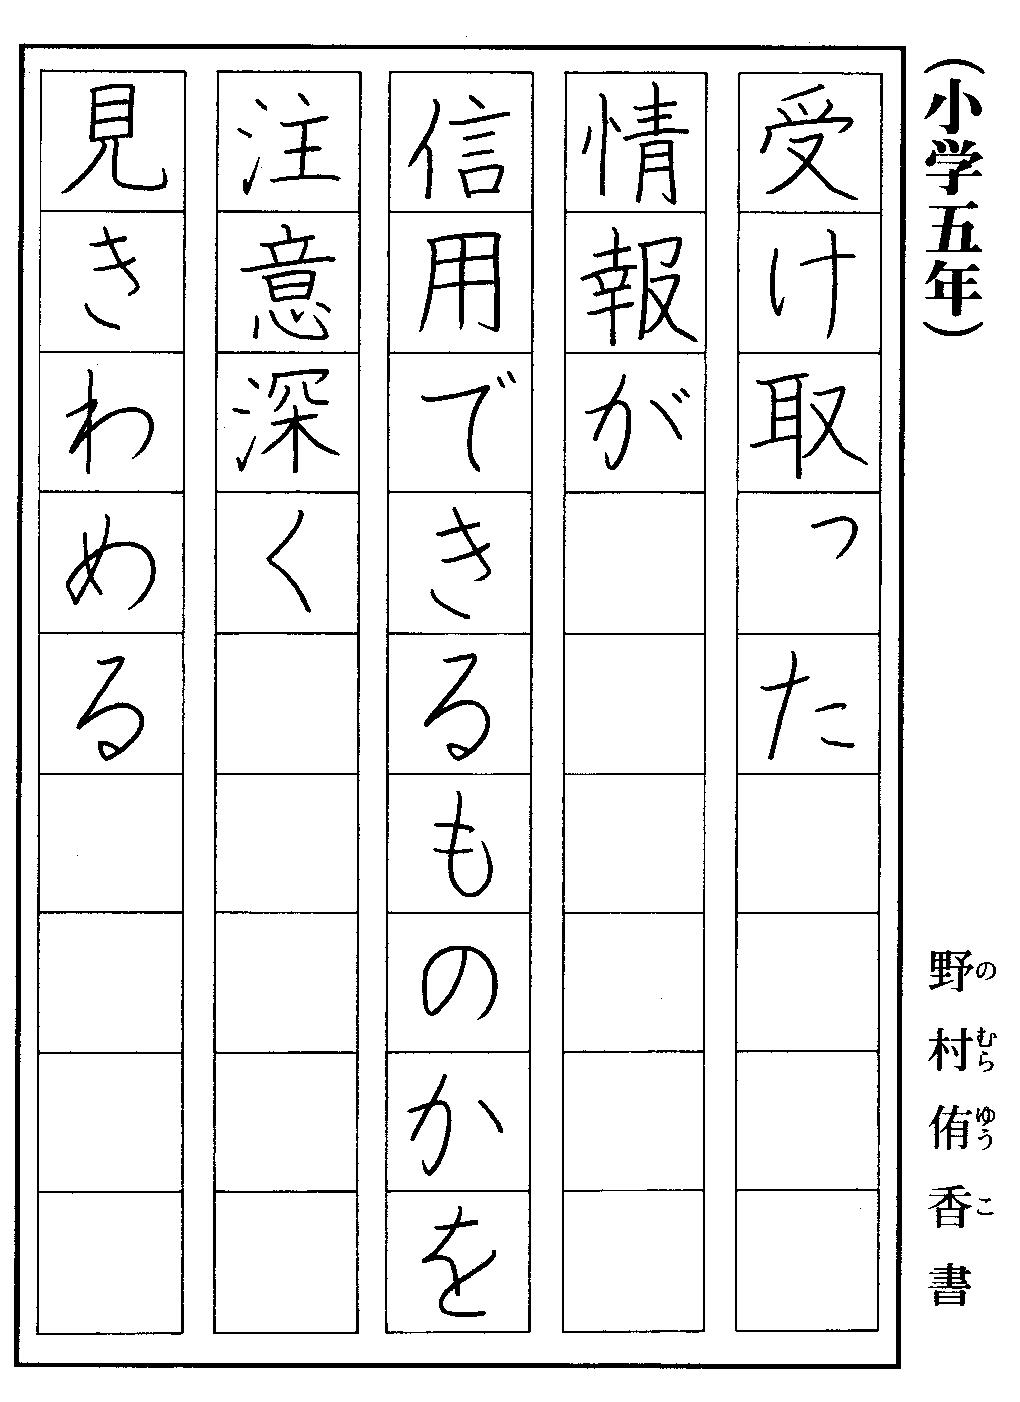 (小学五年)
野村侑香書
のむらゆうこ
受け取った
情報が
信用できるものかを
注意深く
見きわめる